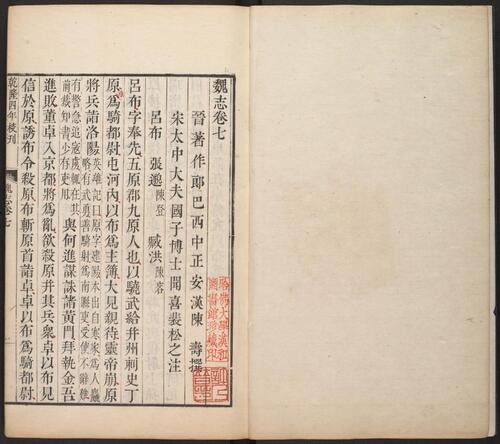 魏志卷七
晉著作郎巴西中正安漢陳壽撰
宋太中大夫國子博士聞喜裴松之注
呂布 張邈 陳登 臧洪 陳容
呂布字奉先五原郡九原人也以驍武給并州刺史丁
原爲騎都尉屯河內以布爲主簿大見親待靈帝崩原
將兵詣洛陽 英雄記曰原字建陽本出自寒家爲人麤
略有武勇善騎射爲南縣吏受使不辭難
有警急追寇虜輒在其
前裁知書少有吏用 與何進謀誅諸黃門拜執金吾
進敗董卓入京都將爲亂欲殺原并其兵衆卓以布見
信於原誘布令殺原布斬原首詣卓卓以布爲騎都尉
乾隆四年校刊
魏志卷七
哈佛大學漢和
圖書館珍藏印